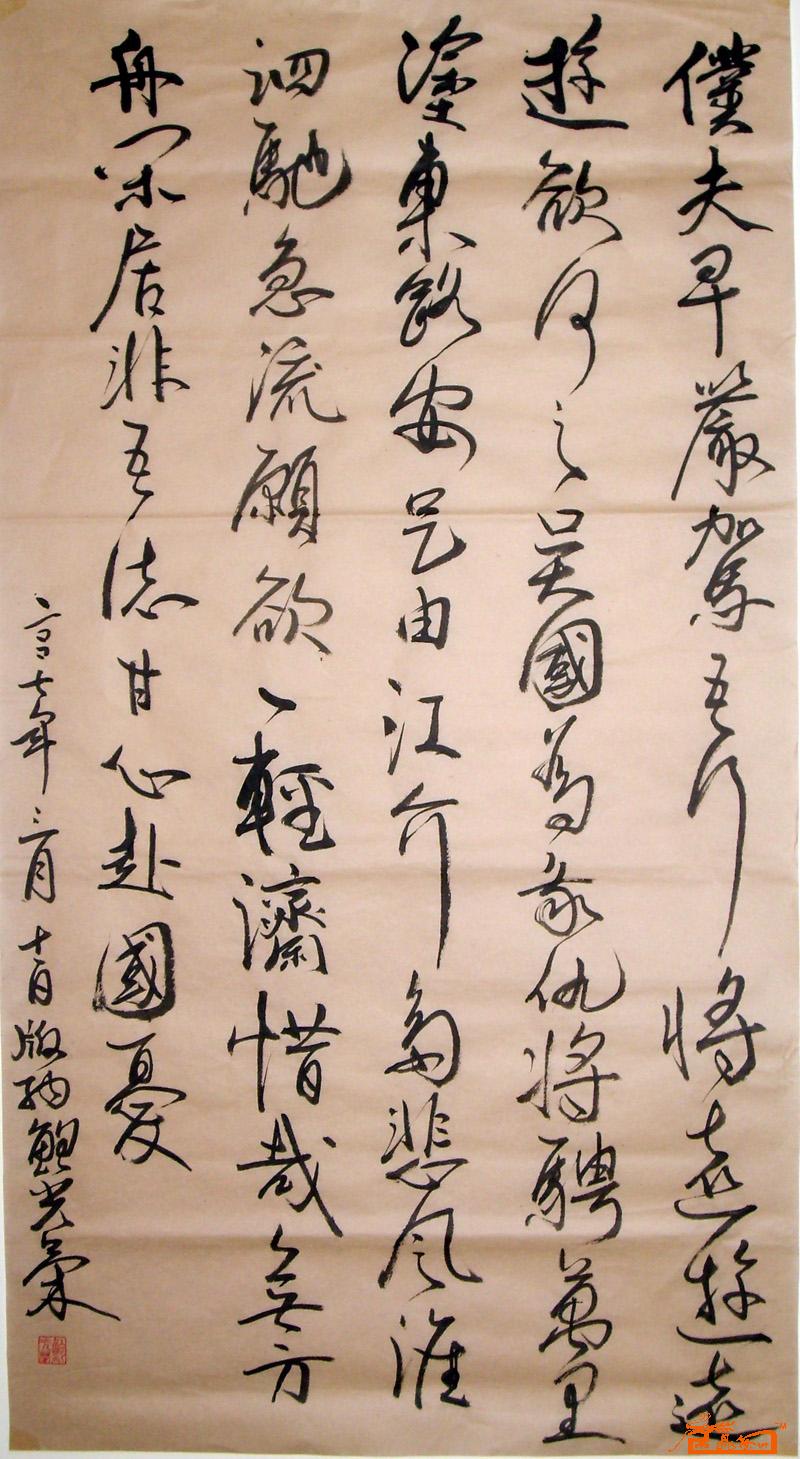 僕夫早嚴駕吾行將遠遊遠
遊欲何之吴國為我仇將騁萬里
塗東路安足由江介多悲風淮
泗馳急流願欲一輕濟惜哉無方
舟閑居非吾志甘心赴國憂
二〇〇七年三月 版納